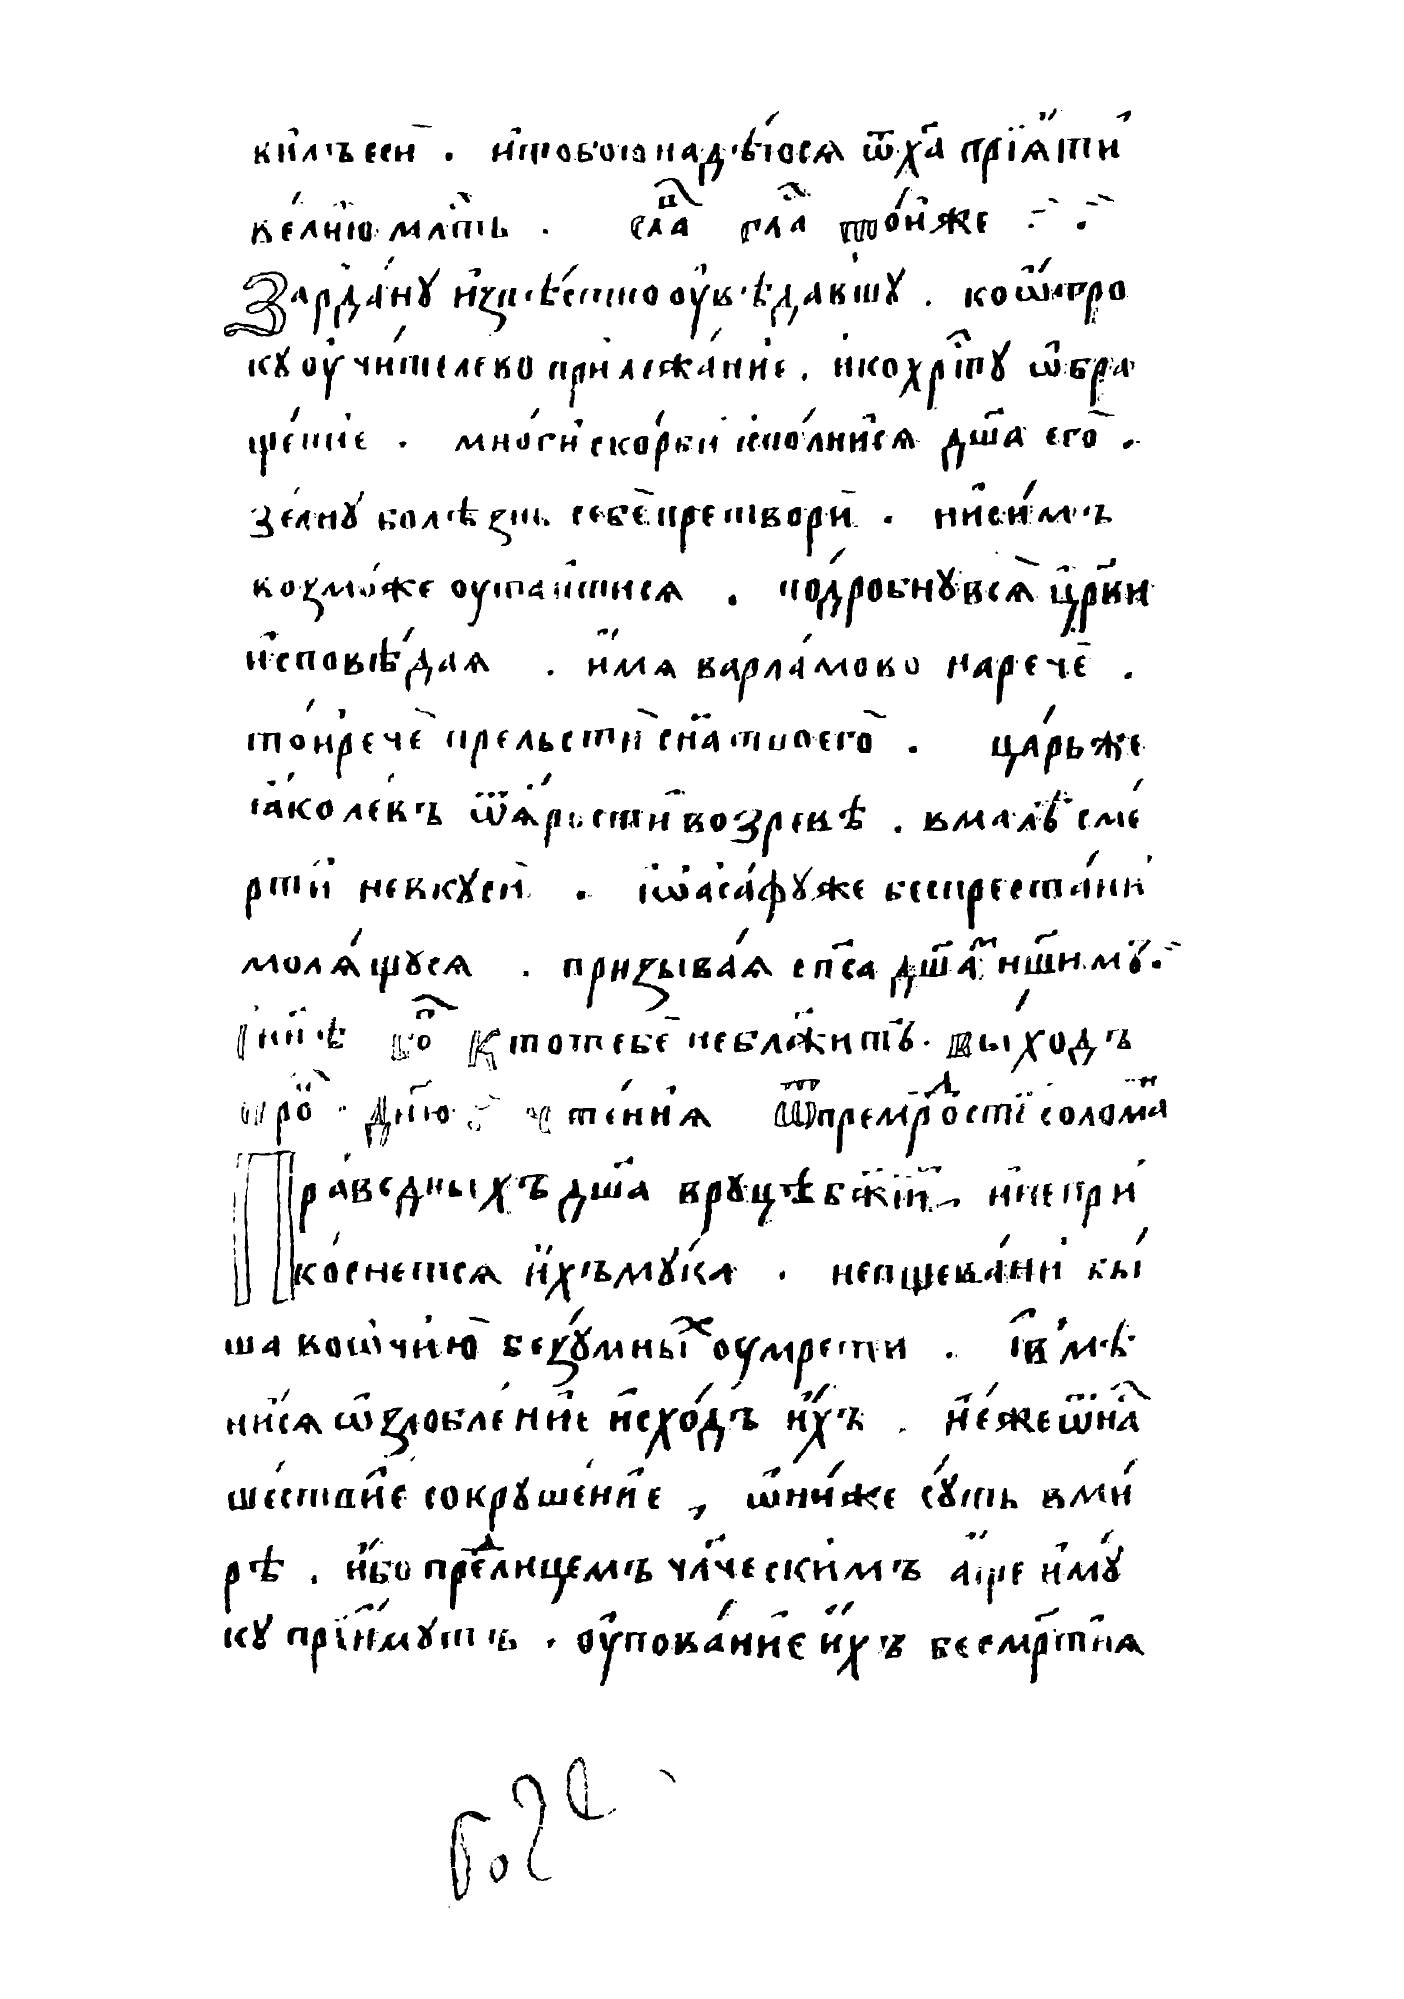 вилъ еси . и тобою надѣюся ѿ х҃а прїяти
велию млⷭ҇ть . сла гла тоиже
Зардану извѣстно оувѣдавшу . ко ѿтро
ку оучителево прилежание . и ко хрⷭ҇ту ѡбра
щение . многи скорби исполнися дш҃а его .
зелну болѣзнь себе претвори . ни симъ
возможе оутаитися . подробну вся цр҃ви
исповѣдая . имя варламово нарече .
тои рече прельсти сн҃а твоего . царь же
ꙗко левъ ѿ ярости возревѣ . вмалѣ сме
рти не вкуси . іѡасафу же беспрестани
молящуся . призывая сп҃са дш҃амъ нш҃имъ .
і нн҃ѣ бо҃ Кто тебе не бл҃житъ . выходъ
про дн҃ю чтения ѿ премⷣрости соломна
Праведныхъ дш҃а в руцѣ бж҃іи . и не при
коснется ихъ мука . непщевани бы
ша во ѿчию безумныхъ оумрети . і вмѣ
нися ѡзлобление исходъ ихъ . и еже ѿ на
шествие сокрушение , ѡни же суть в ми
рѣ . ибо предлицемъ чл҃ческимъ аще и му
ку приимутъ . оупование ихъ бесмр҃тия